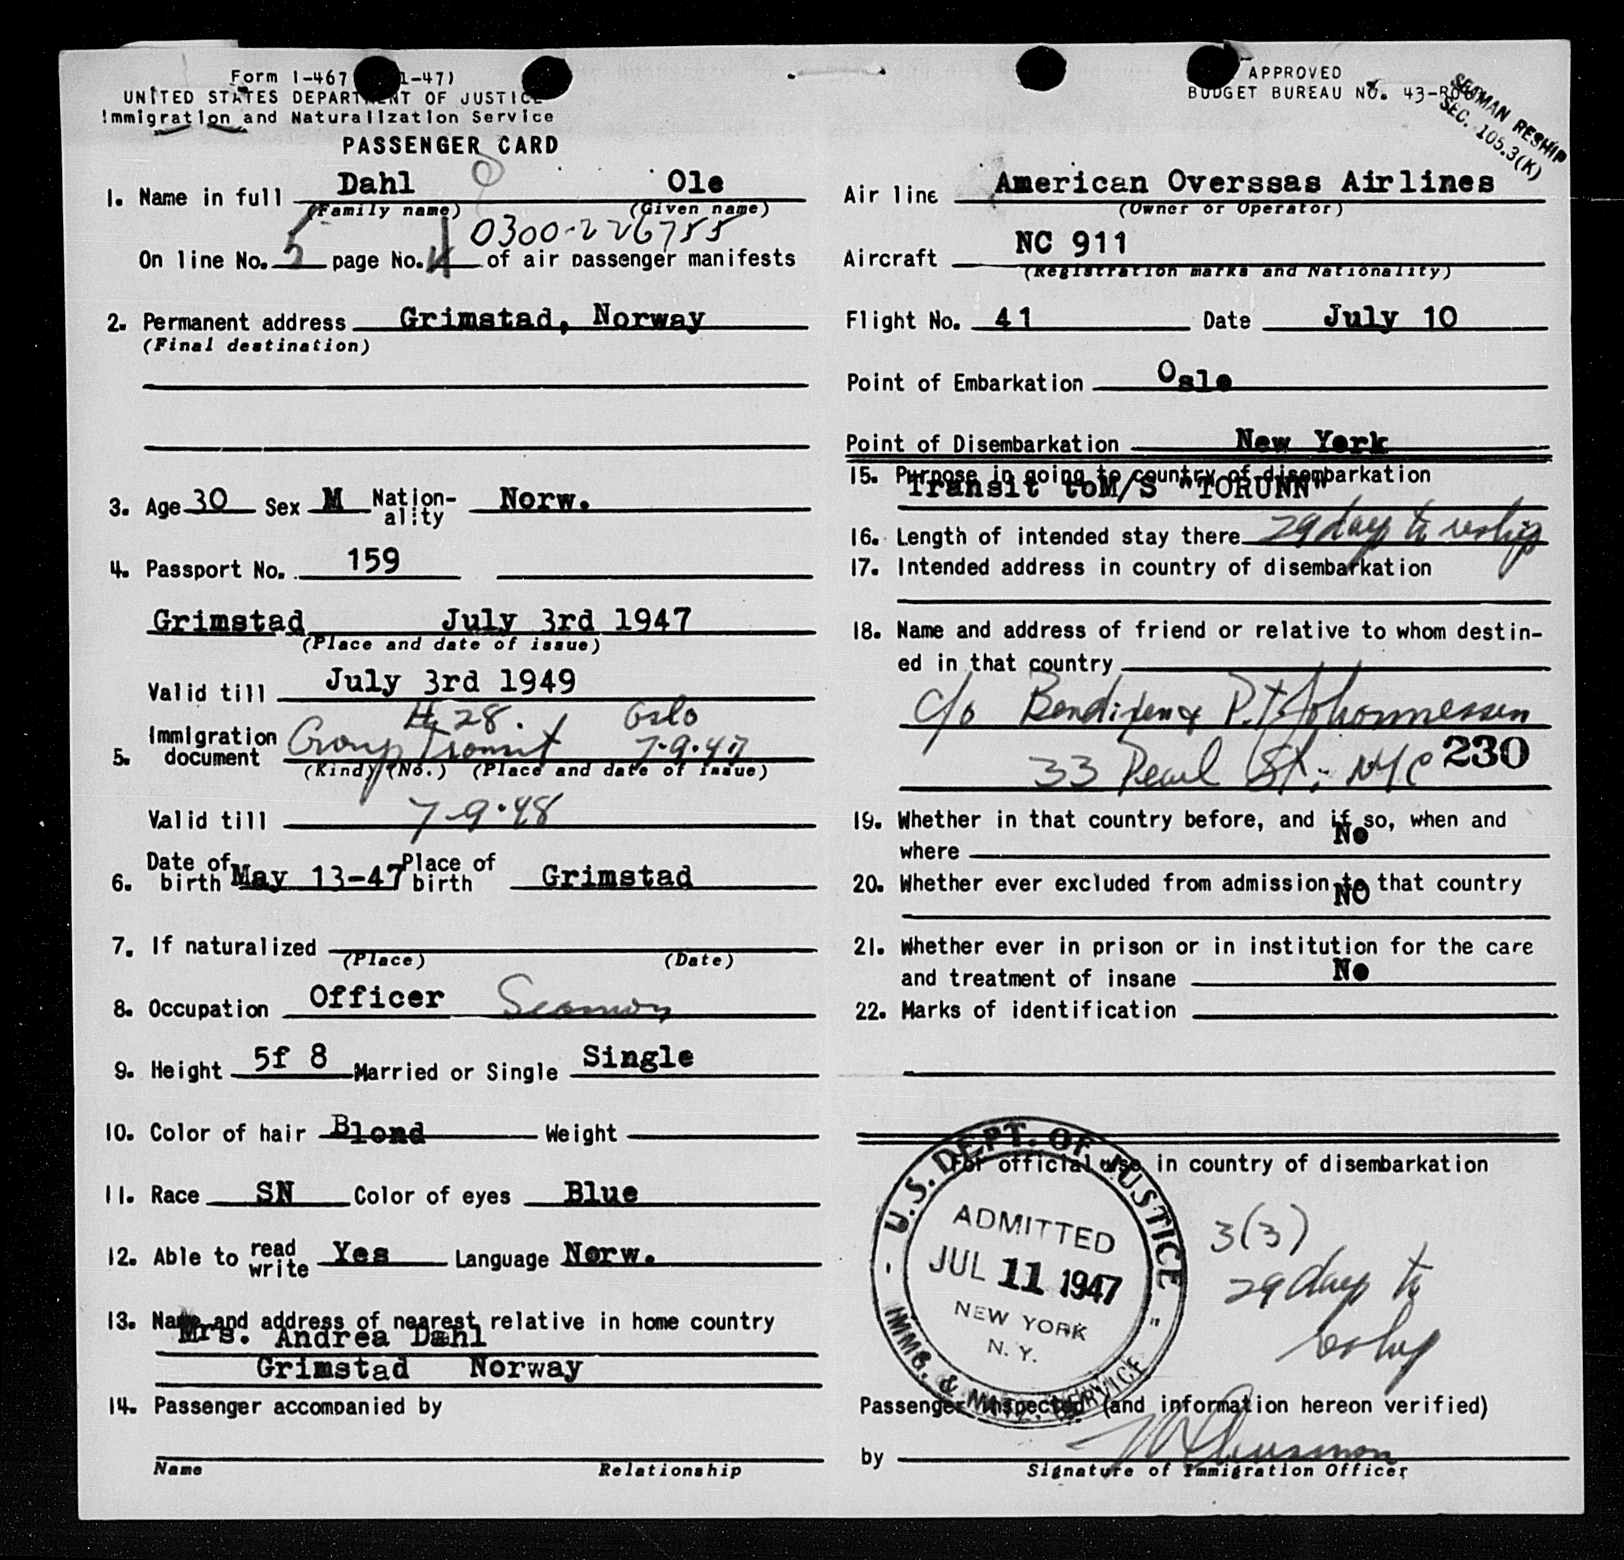 Form I-467 1-47)
UNITED STATES DEPARTMENT OF JUSTICE
Immigration and Naturalization Service
PASSENGER CARD
1. Name in full Dahl Ole
(Family name) (Given name)
0300-226755
On line No. 5 page No. 4 of air passenger manifests
2. Permanent address Grimstad, Norway
(Final destination)
3. Age 30 Sex M Nation-ality Norw.
4. Passport No. 159
Grimstad July 3rd 1947
(Place and date of issue)
Valid till July 3rd 1949
28. Oslo
5. Immigration document Group Transit 7-9-47
(Kind) (No.) (Place and date of issue)
Valid till 7-9-48
6. Date of birth May 13-47 Place of birth Grimstad
7. If naturalized
(Place) (Date)
8. Occupation Officer Seaman
9. Height 5f 8 Married or Single Single
10. Color of hair Blond Weight
11. Race SN Color of eyes Blue
12. Able to read write Yes Language Norw.
13. Name and address of nearest relative in home country
Mrs. Andrea Dahl
Grimstad Norway
14. Passenger accompanied by
Name Relationship
APPROVED
BUDGET BUREAU NO. 43-
SEAMAN RESHIP
SEC. 105.3(K)
Air line American Overssas Airlines
(Owner or Operator)
Aircraft NC 911
(Registration marks and Nationality)
Flight No. 41 Date July 10
Point of Embarkation Oslo
Point of Disembarkation New York
15. Purpose in going to country of disembarkation
Transit toM/S "TORUNN"
16. Length of intended stay there 29 days to reship
17. Intended address in country of disembarkation
18. Name and address of friend or relative to whom destin-
ed in that country
c/o Bendixen & P.T. Johannessen
33 Pearl St., NYC 230
19. Whether in that country before, and if so, when and
where No
20. Whether ever excluded from admission to that country
NO
21. Whether ever in prison or in institution for the care
and treatment of insane No
22. Marks of identification
For official use in country of disembarkation
U.S. DEPT. OF JUSTICE
ADMITTED
JUL 11 1947
NEW YORK
N. Y.
IMMG. & NATZ. SERVICE
3(3)
29 days to
reship
Passenger inspected (and information hereon verified)
by
Signature of Immigration Officer